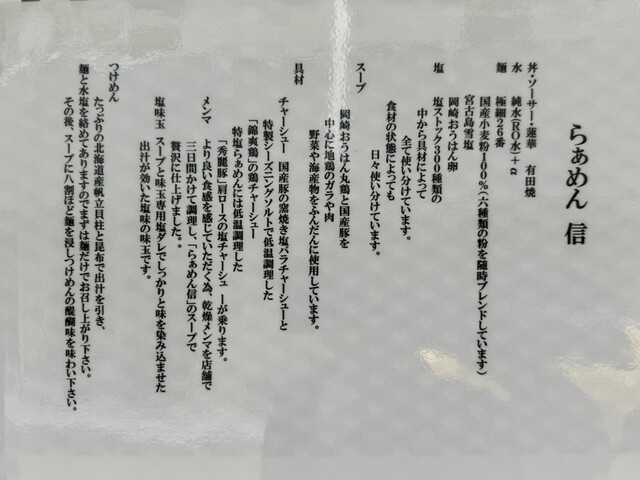 らぁめん 信
丼・ソーサー・蓮華 有田焼
水 純水(RO水)+α
麺 極細26番
国産小麦粉100%(六種類の粉を随時ブレンドしています)
宮古島雪塩
岡崎おうはん卵
塩 塩ストック300種類の
中から具材によって
全て使い分けています。
食材の状態によっても
日々使い分けています。
スープ
岡崎おうはん丸鶏と国産豚を
中心に地鶏のガラや肉
野菜や海産物をふんだんに使用しています。
具材
チャーシュー 国産豚の窯焼き塩バラチャーシューと
特製シーズニングソルトで低温調理した
「錦爽鶏」の鶏チャーシュー
特塩らぁめんには低温調理した
「秀麗豚」肩ロースの塩チャーシューが乗ります。
メンマ より良い食感を感じていただく為、乾燥メンマを店舗で
三日間かけて調理し、「らぁめん信」のスープで
贅沢に仕上げました。
塩味玉 スープと味玉専用塩ダレでしっかりと味を染み込ませた
出汁が効いた塩味の味玉です。
つけめん
たっぷりの北海道産帆立貝柱と昆布で出汁を引き、
麺と水塩を絡めてありますのでまずは麺だけでお召し上がり下さい。
その後、スープに八割ほど麺を浸しつけめんの醍醐味を味わい下さい。